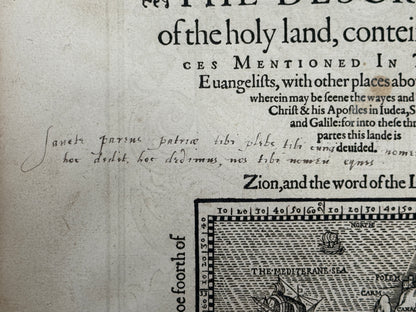 THE DESCR
of the holy land, contein
CES MENTIONED IN T
Euangelists, with other places abo
wherein may be seene the wayes and
Christ & his Apostles in Iudea, S
and Galile: for into these th
partes this lande is
deuided.
Sancte parens patriæ tibi plebs tibi nomen
hoc dedit, hoc dedimus, nos tibi nomen eques
Zion, and the word of the L
10 20 30 40 50 60 10 20 30 40 50 60
NORTH
THE MEDITERANE SEA
CARM
oe foorth of